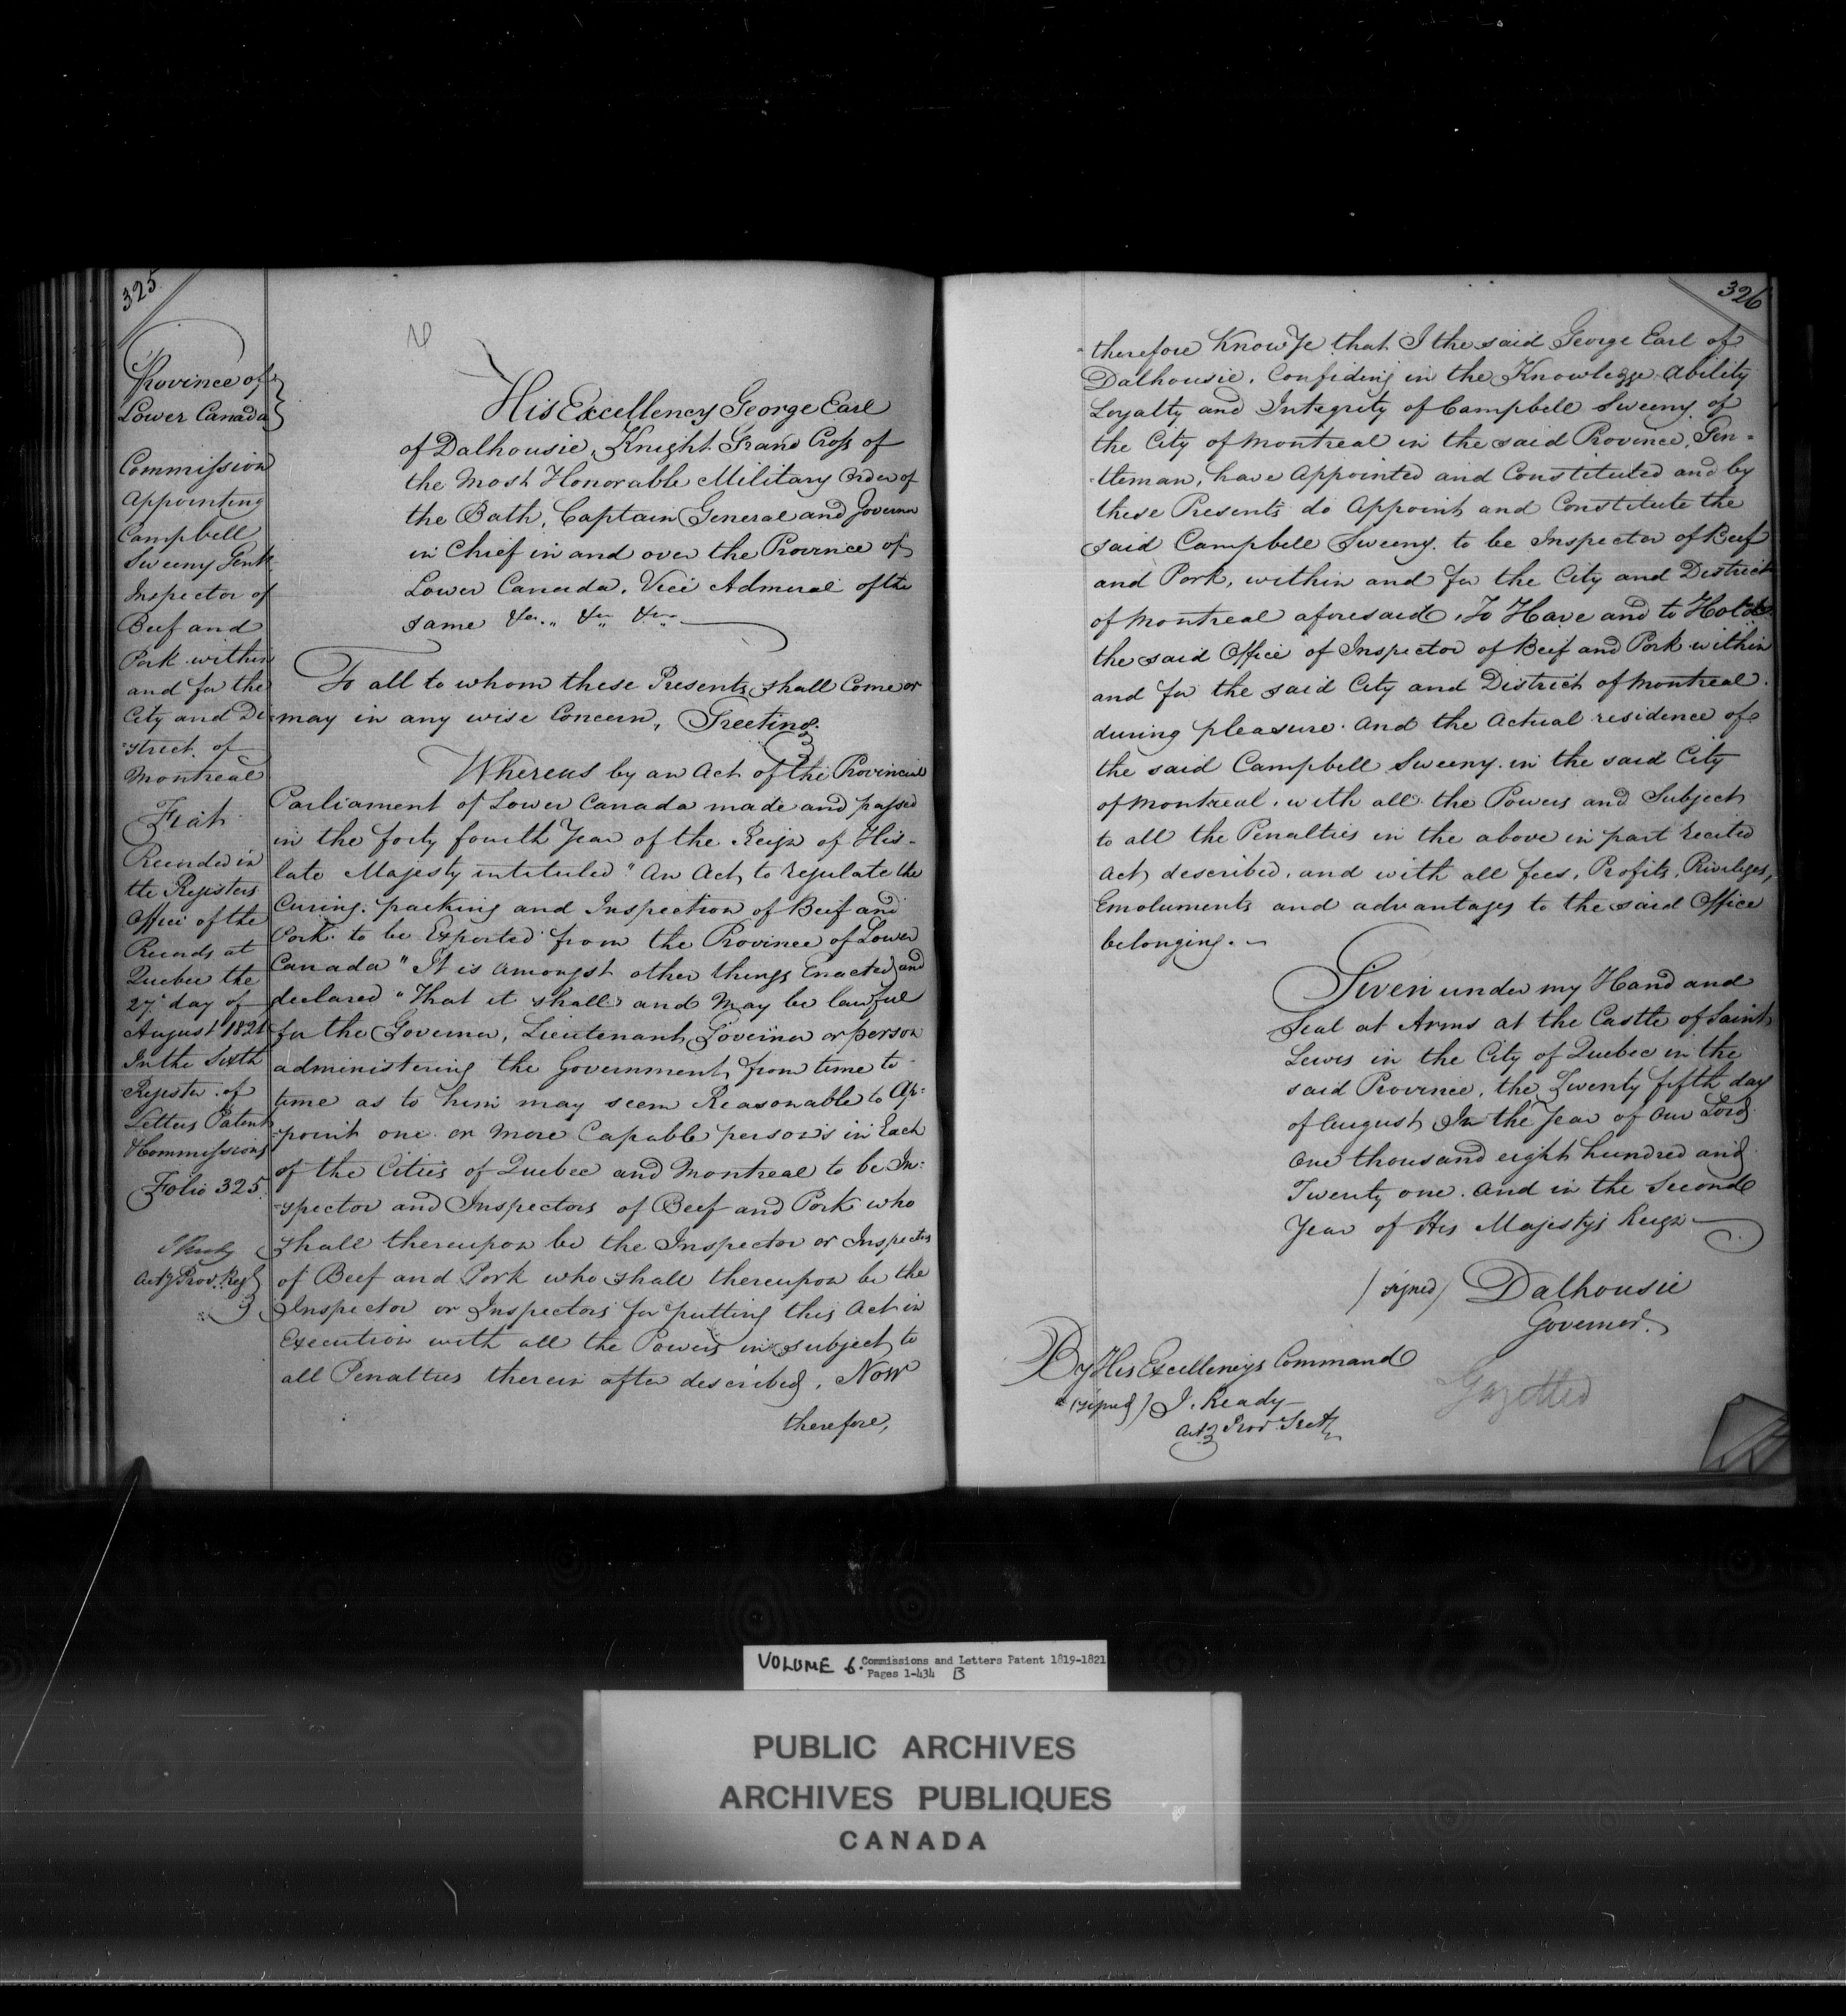 325
Province of
Lower Canada
Commission
Appointing
Campbell
Sweeny Gentn
Inspector of
Beef and
Pork within
and for the
City and Di-
-strict of
Montreal
Fiat
Recorded in
the Registers
Office of the
Records at
Quebec the
27th day of
August 1821
In the Sixth
Register of
Letters Patent
& Commissions
Folio 325.
J Ready
Actg Prov. Regr
His Excellency George Earl
of Dalhousie, Knight Grand Cross of
the Most Honorable Military Order of
the Bath, Captain General and Governor
in Chief in and over the Province of
Lower Canada, Vice Admiral of the
same &c. &c. &c.
To all to whom these Presents shall Come or
may in any wise Concern, Greeting.
Whereas by an Act of the Provincial
Parliament of Lower Canada made and passed
in the forty fourth Year of the Reign of His
late Majesty intituled "An Act, to regulate the
Curing, packing and Inspection of Beef and
Pork to be Exported from the Province of Lower
Canada" It is amongst other things Enacted and
declared "That it shall and May be lawful
for the Governor, Lieutenant Governor or person
administering the Government, from time to
time as to him may seem Reasonable to Ap-
-point one or More Capable persons in Each
of the Cities of Quebec and Montreal to be In-
-spector and Inspectors of Beef and Pork who
shall thereupon be the Inspector or Inspectors
of Beef and Pork who shall thereupon be the
Inspector or Inspectors for putting this Act in
Execution with all the Powers in subject to
all Penalties therein after described, Now
therefore,
326
therefore Know Ye that I the said George Earl of
Dalhousie, Confiding in the Knowlegge Ability
Loyalty and Integrity of Campbell Sweeny of
the City of Montreal in the said Province, Gen-
-tleman, have Appointed and Constituted and by
these Presents do Appoint and Constitute the
said Campbell Sweeny to be Inspector of Beef
and Pork, within and for the City and District
of Montreal aforesaid, To Have and to Hold
the said Office of Inspector of Beef and Pork within
and for the said City and District of Montreal
during pleasure and the Actual residence of
the said Campbell Sweeny in the said City
of Montreal, with all the Powers and Subject
to all the Penalties in the above in part recited
Act, described, and with all fees, Profits, Privileges,
Emoluments and advantages to the said Office
belonging.
Given under my Hand and
Seal at Arms at the Castle of Saint
Lewis in the City of Quebec in the
said Province, the Twenty fifth day
of August, In the Year of Our Lord
One thousand eight hundred and
Twenty one. And in the Second
Year of His Majestys Reign
(signed) Dalhousie
Governor.
By His Excellencys Command
(signed) J. Ready
Actg Prov. Secty
Gazetted
VOLUME 6. Commissions and Letters Patent 1819-1821
Pages 1-434 B
PUBLIC ARCHIVES
ARCHIVES PUBLIQUES
CANADA